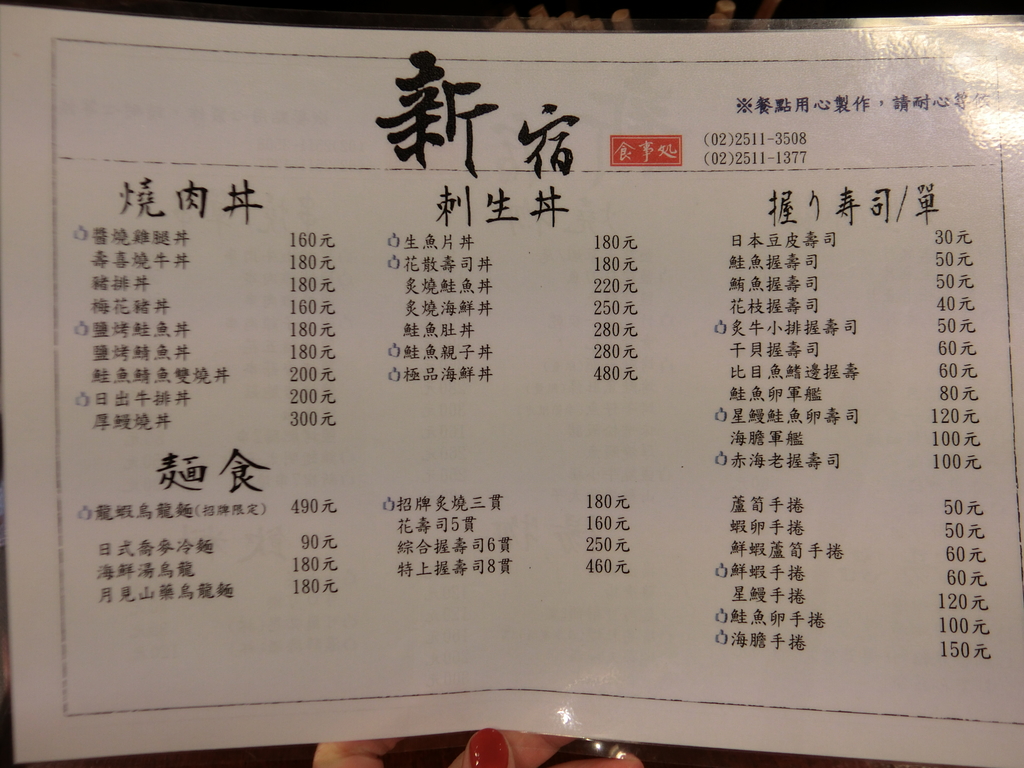 新宿
食事処
※餐點用心製作，請耐心等候
(02)2511-3508
(02)2511-1377
燒肉丼
醬燒雞腿丼 160元
壽喜燒牛丼 180元
豬排丼 180元
梅花豬丼 160元
鹽烤鮭魚丼 180元
鹽烤鯖魚丼 180元
鮭魚鯖魚雙燒丼 200元
日出牛排丼 200元
厚鰻燒丼 300元
麵食
龍蝦烏龍麵(招牌限定) 490元
日式喬麥冷麵 90元
海鮮湯烏龍 180元
月見山藥烏龍麵 180元
刺生丼
生魚片丼 180元
花散壽司丼 180元
炙燒鮭魚丼 220元
炙燒海鮮丼 250元
鮭魚肚丼 280元
鮭魚親子丼 280元
極品海鮮丼 480元
招牌炙燒三貫 180元
花壽司5貫 160元
綜合握壽司6貫 250元
特上握壽司8貫 460元
握り寿司/單
日本豆皮壽司 30元
鮭魚握壽司 50元
鮪魚握壽司 50元
花枝握壽司 40元
炙牛小排握壽司 50元
干貝握壽司 60元
比目魚鰭邊握壽 60元
鮭魚卵軍艦 80元
星鰻鮭魚卵壽司 120元
海膽軍艦 100元
赤海老握壽司 100元
蘆筍手捲 50元
蝦卵手捲 50元
鮮蝦蘆筍手捲 60元
鮮蝦手捲 60元
星鰻手捲 120元
鮭魚卵手捲 100元
海膽手捲 150元